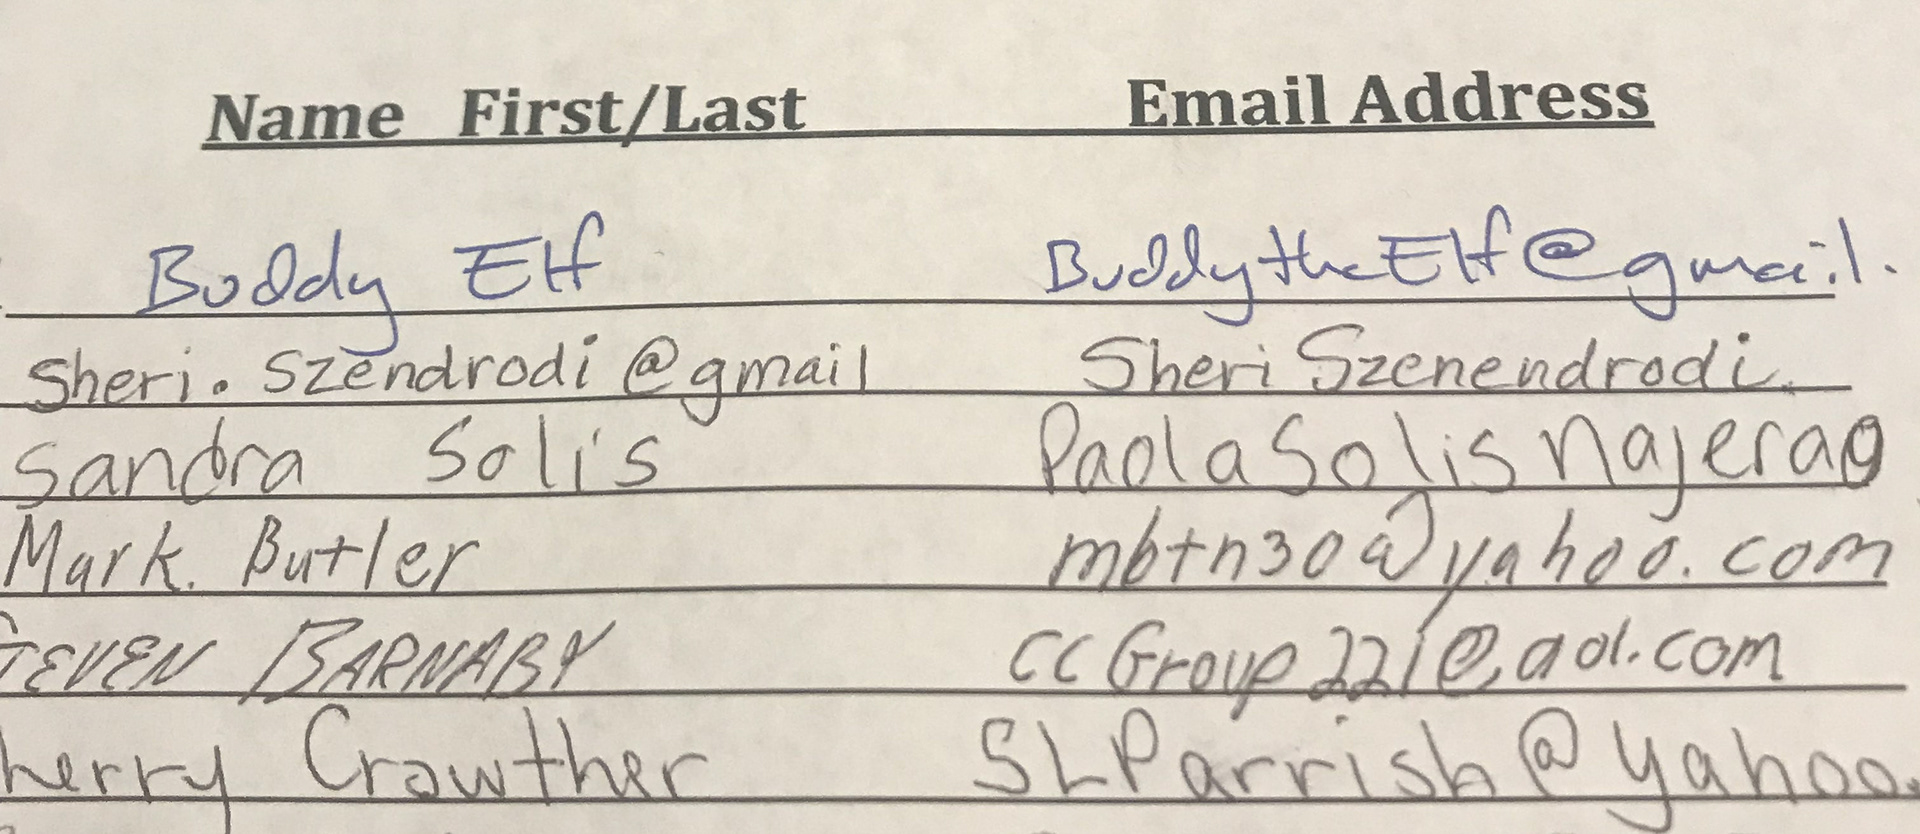 Name First/Last Email Address
Buddy Elf BuddytheElf@gmail.
Sheri.Szendrodi@gmail Sheri Szenendrodi.
Sandra Solis PaolaSolisnajera@
Mark. Butler mbtn30@yahoo.com
TEVEN BARNABY CCGroup221@aol.com
herry Crowther SLParrish@yahoo.